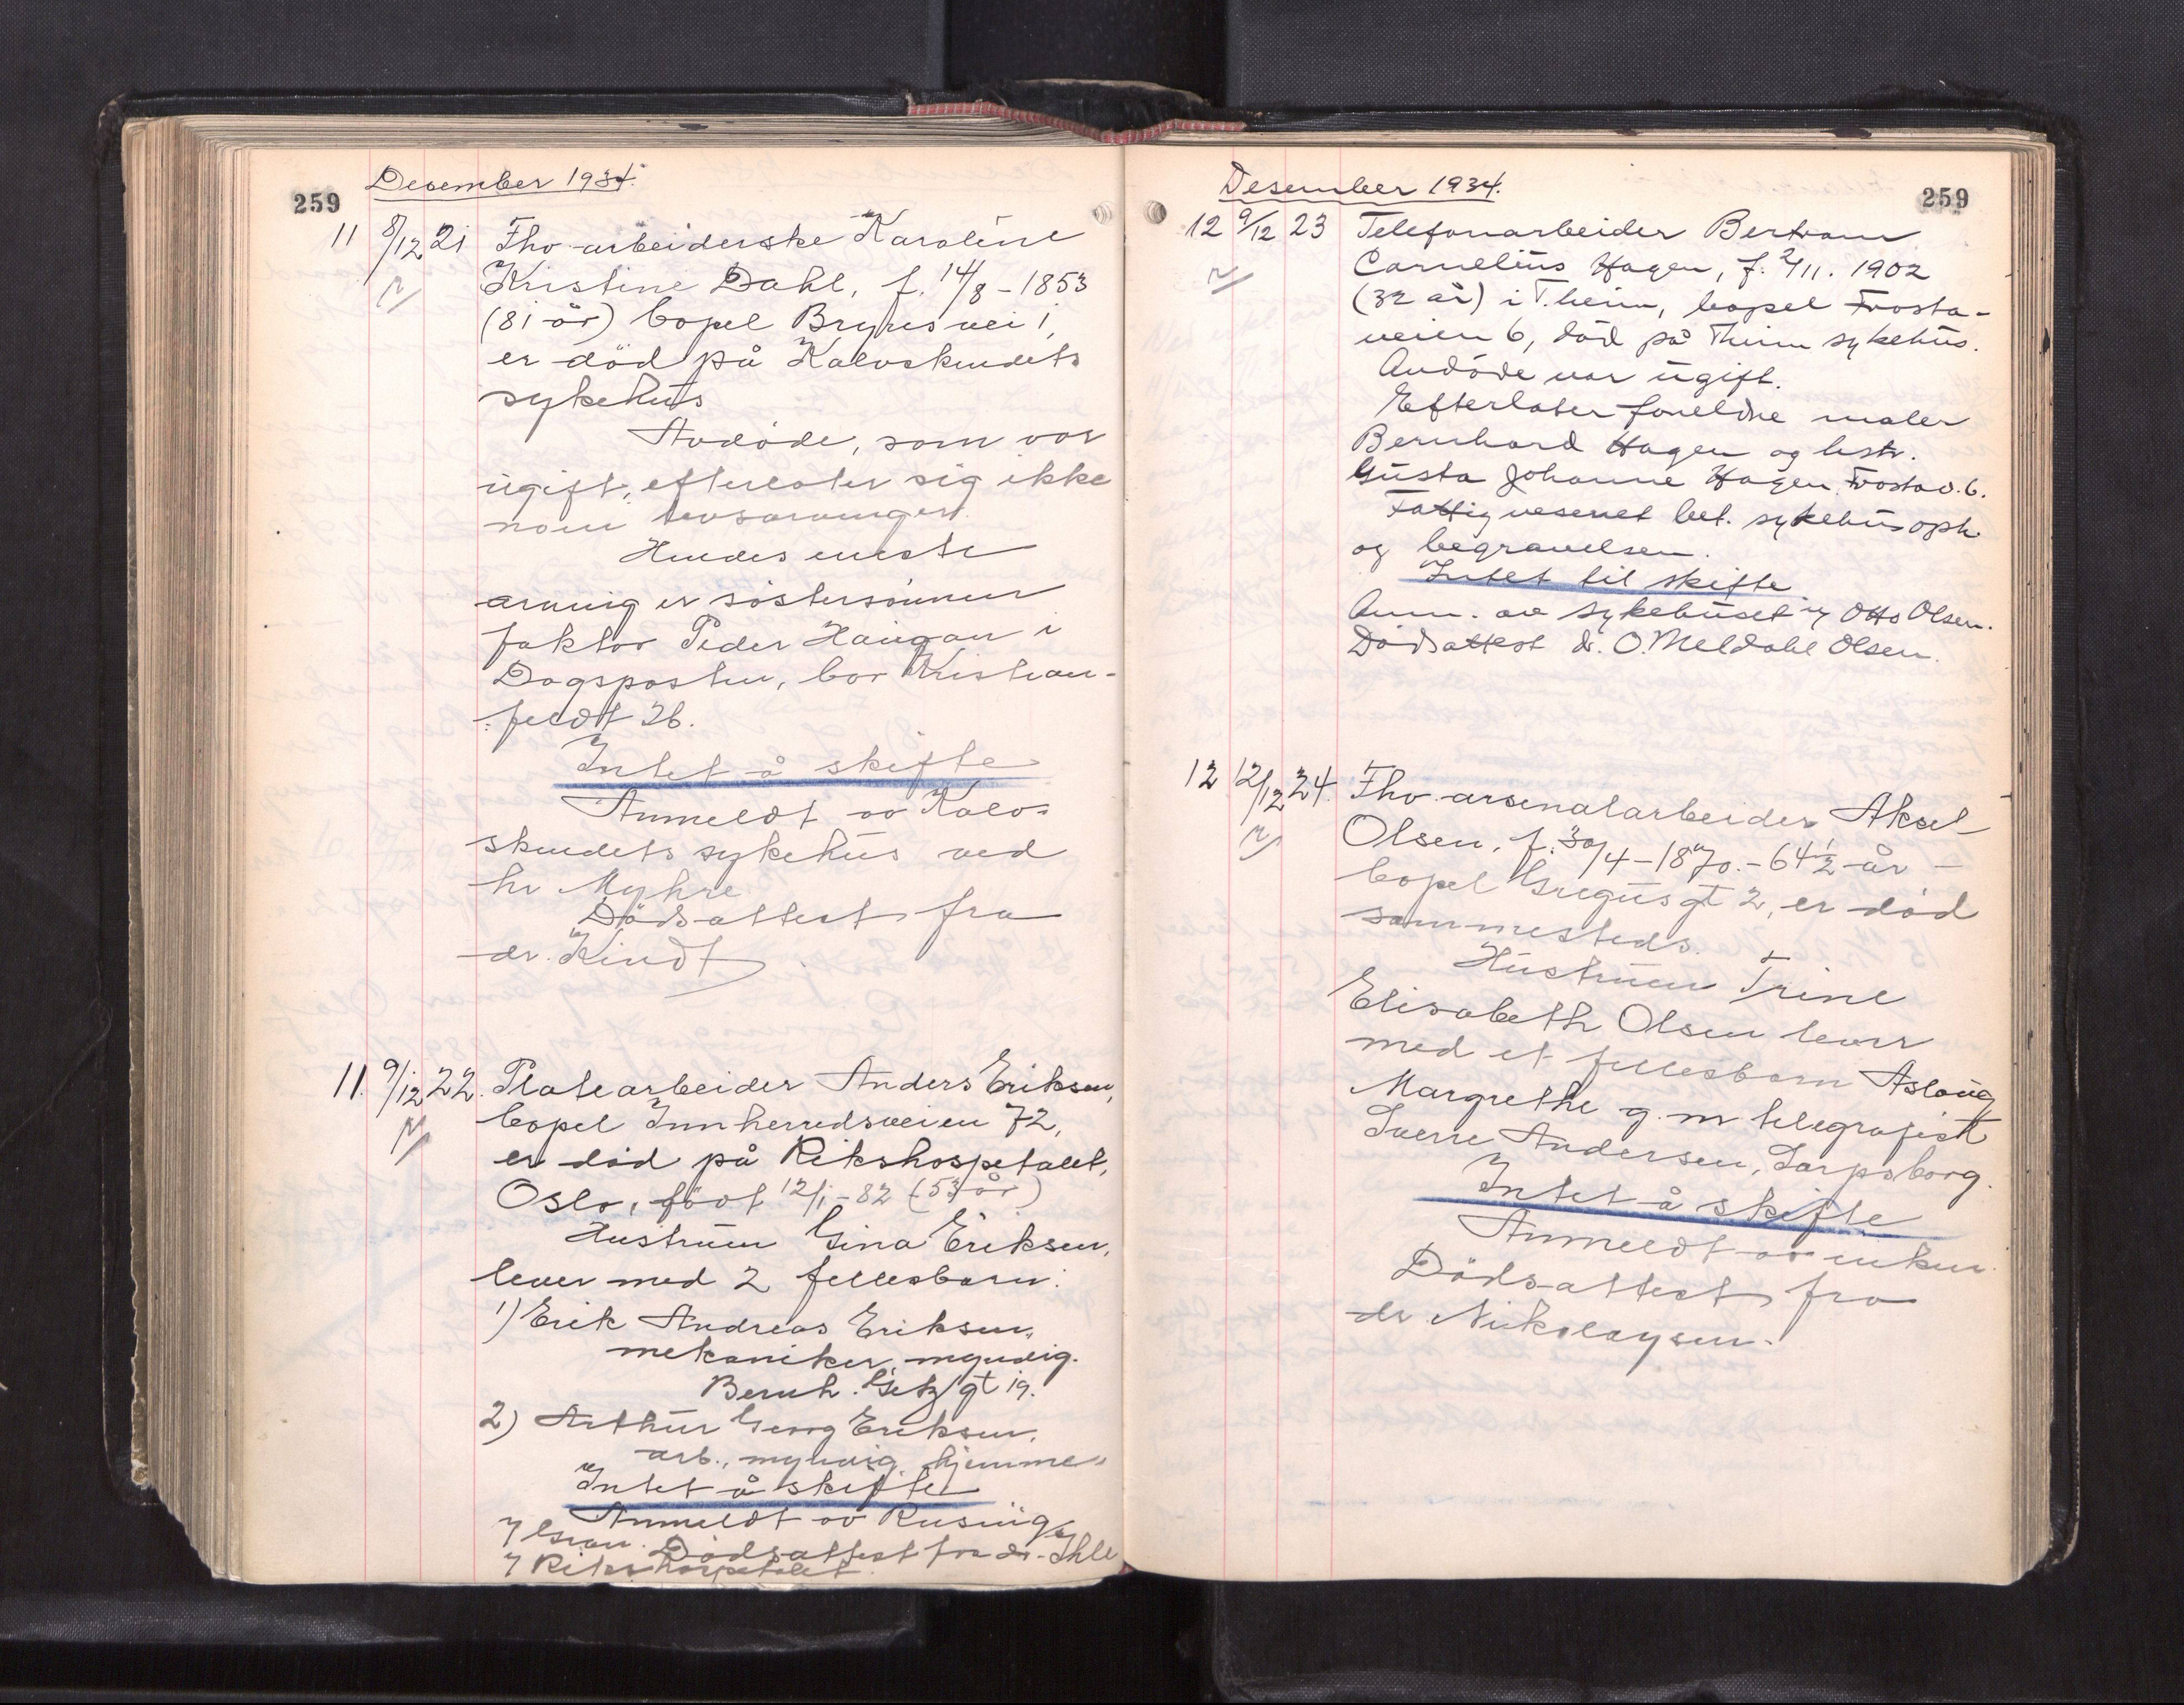 259
Desember 1934.
11 8/12 21 Fhv. arbeiderske Karoline
Kristine Dahl, f. 14/8 - 1853
(81 år) bopel Bryns vei 1,
er död på Kalvskindets
sykehus
Avdöde, som var
ugift, efterlater sig ikke
noen livsarvinger.
Hendes eneste
arving er söstersönnen
faktor Peder Haugan i
Dagsposten, bor Kristian-
feldt 26.
Intet å skifte
Anmeldt av Kalv-
skindets sykehus ved
hr Myhre
Dödsattest fra
dr. Kindt.
11. 9/12 22. Platearbeider Anders Eriksen,
bopel Innherredsveien 72,
er död på Rikshospitalet,
Oslo, född 12/1 - 82 (53 år)
Hustruen Gina Eriksen,
lever med 2 fellesbarn:
1) Erik Andreas Eriksen,
mekaniker, myndig.
Bernh. Getz gt 19.
2) Arthur Georg Eriksen,
arb., myndig, hjemme.
Intet å skifte
Anmeldt av Rusing
Dödsattest fra dr. Ihle
Rikshospitalet.
259
Desember 1934.
12 9/12 23 Telefonarbeider Bertram
Cornelius Hagen, f. 2/11. 1902
(32 år) i T.heim, bopel Frosta-
veien 6, död på Theim sykehus.
Avdöde var ugift.
Efterlater foreldre maler
Bernhard Hagen og hstr.
Gusta Johanne Hagen, Frostav. 6.
Fattigvesenet bet. sykehusoph.
og begravelsen.
Intet til skifte
Anm. av sykehuset og Otto Olsen.
Dödsattest dr. O. Meldahl Olsen.
12 12/12 24. Fhv. arsenalarbeider Aksel
Olsen, f. 30/4 - 1870. - 64 1/2 år -
bopel Gregusgt 2, er död
sammesteds.
Hustruen Trine
Elisabeth Olsen lever
med et fellesbarn Aslaug
Margrethe g. m telegrafist
Sverre Andersen, Sarpsborg.
Intet å skifte
Anmeldt av enken.
Dödsattest fra
dr Nikolaysen.